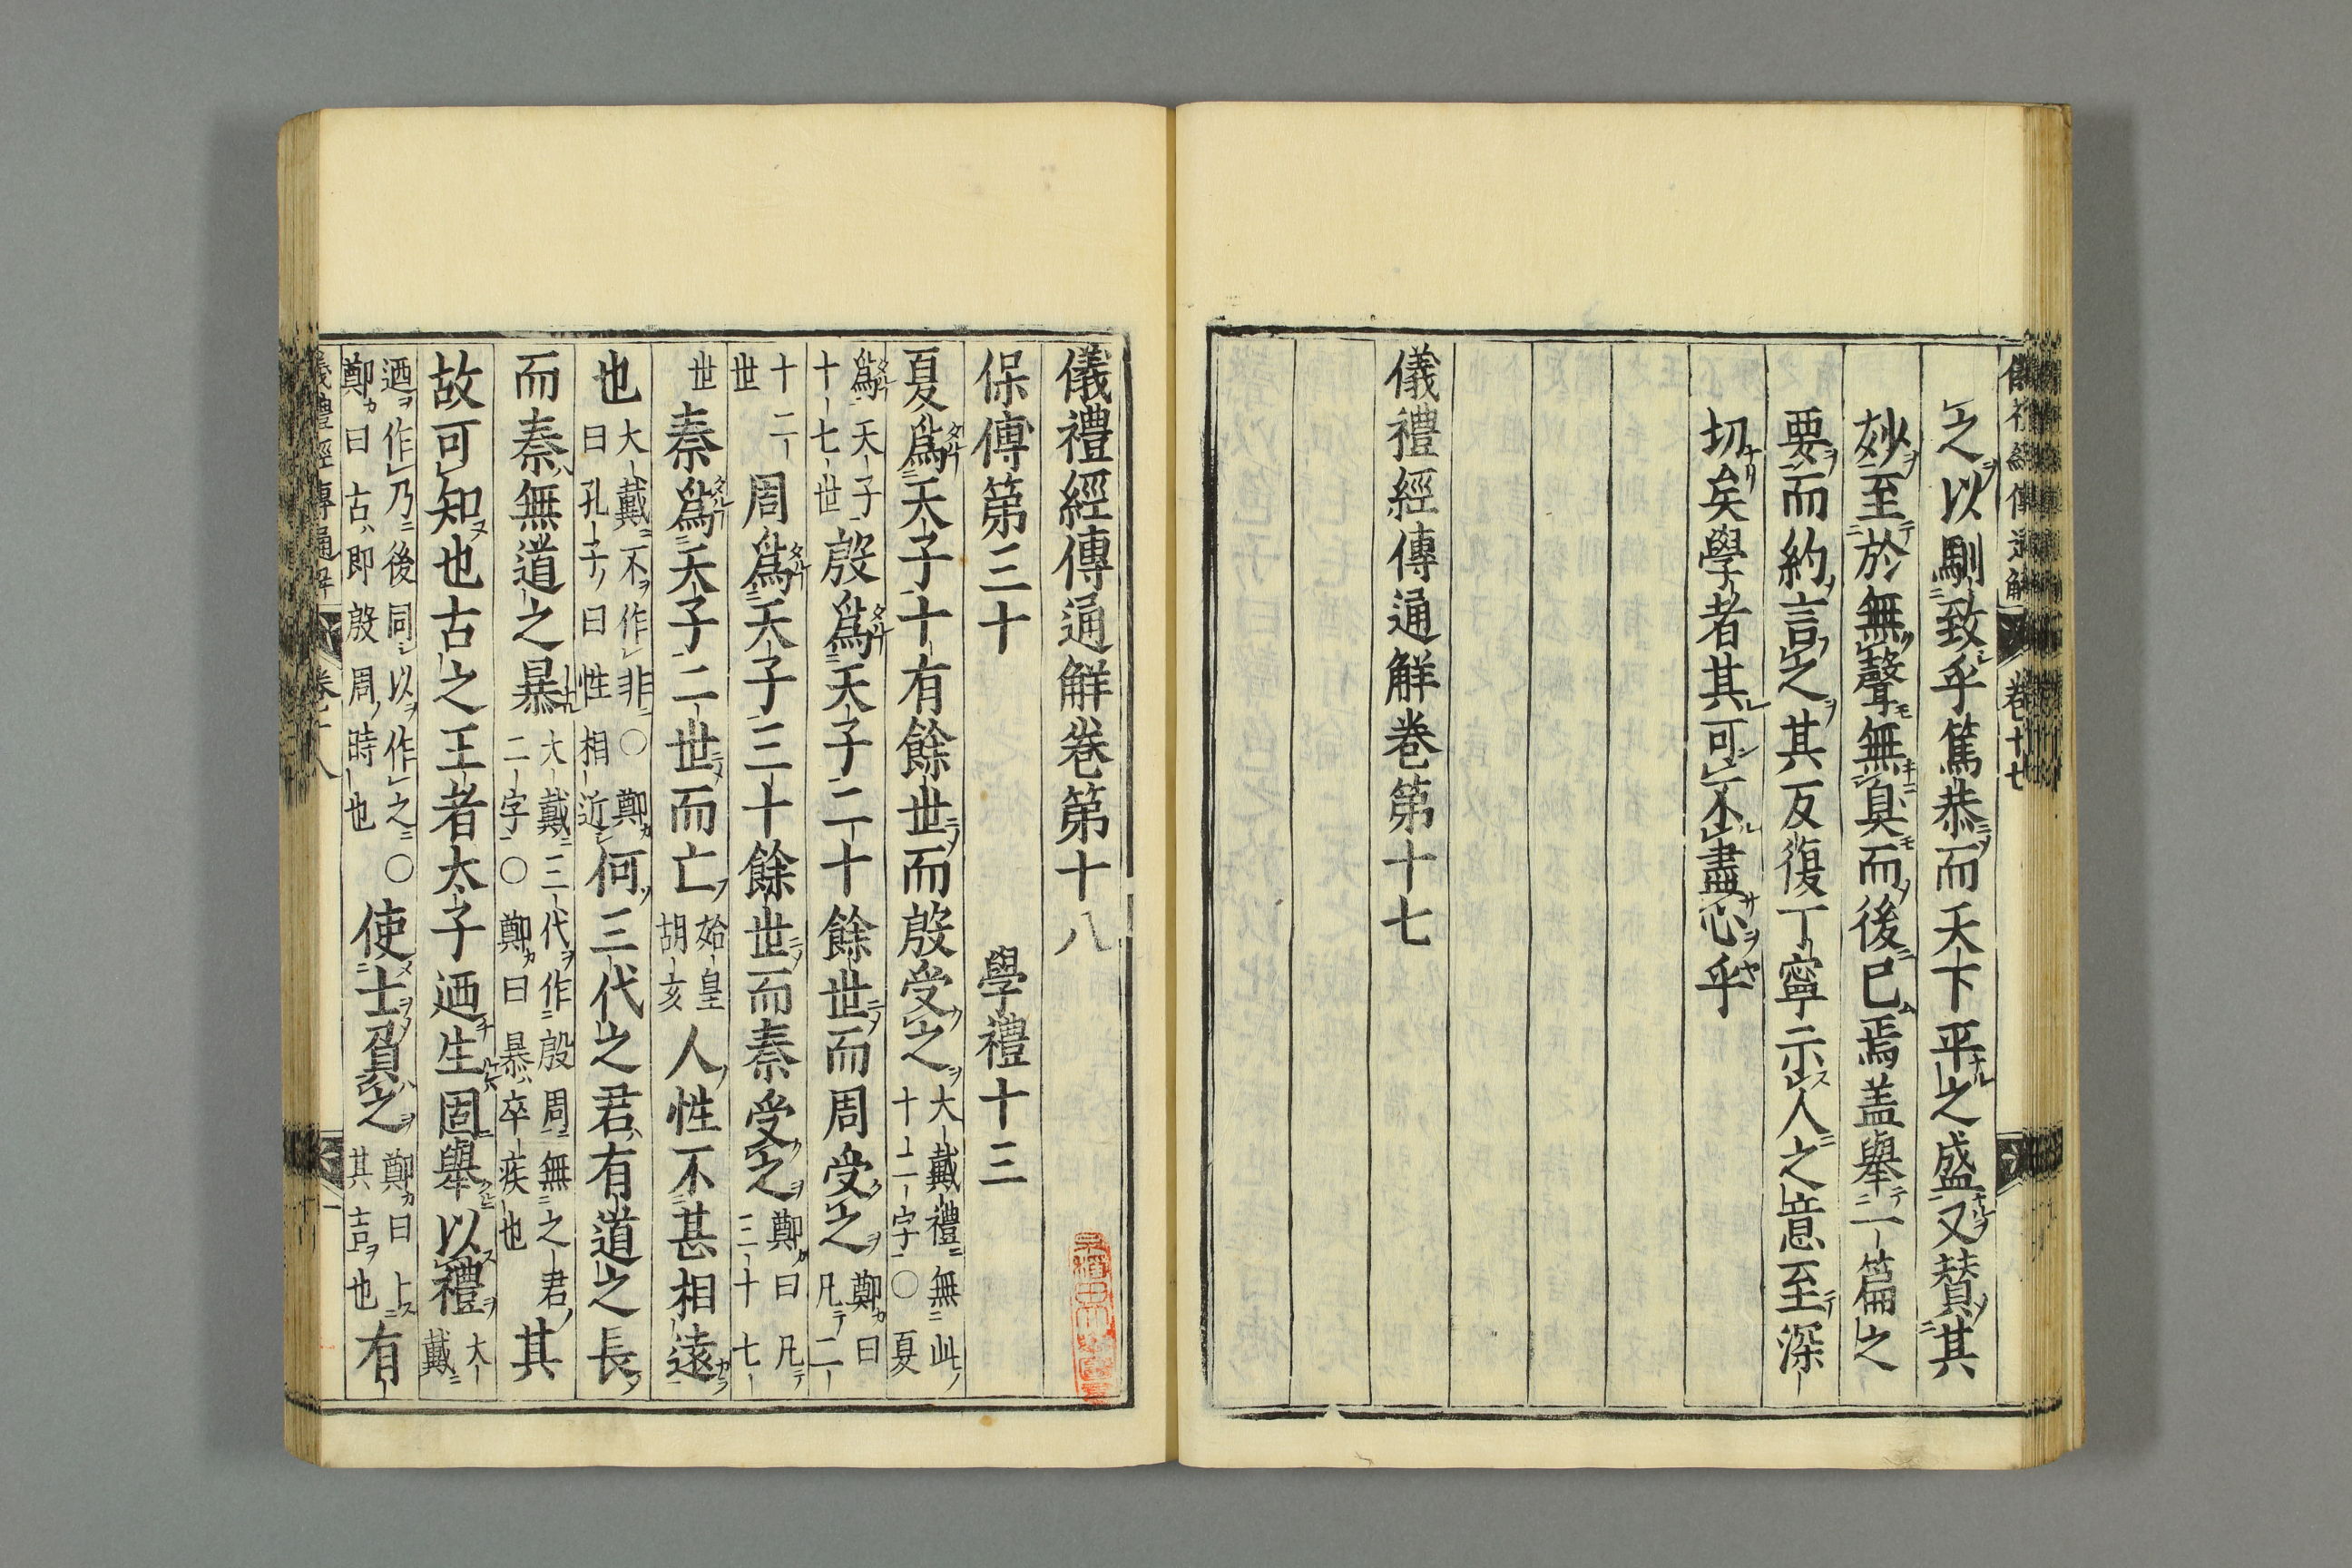 之以馴致乎篤恭而天下平之盛又賛其
妙至於無聲無臭而後已焉盖舉一篇之
要而約言之其反復丁寧示人之意至深
切矣學者其可不盡心乎
儀禮經傳通解卷第十七
卷十七
儀禮經傳通解卷第十八
保傅第三十 學禮十三
夏爲天子十有餘世而殷受之大戴禮無此十上二字○鄭曰夏
爲天子十七世殷爲天子二十餘世而周受之鄭曰凡二
十二世周爲天子三十餘世而秦受之鄭曰凡三十七
世秦爲天子二世而亡始皇胡亥人性不甚相遠
也大戴不作非○鄭曰孔子曰性相近何三代之君有道之長
而秦無道之暴大戴三代作殷周無之君二字○鄭曰暴卒疾也其
故可知也古之王者太子迺生固舉以禮大戴
迺作乃後同以作之○鄭曰古即殷周時也使士負之鄭曰上其言也有
儀禮經傳通解 卷十八 一